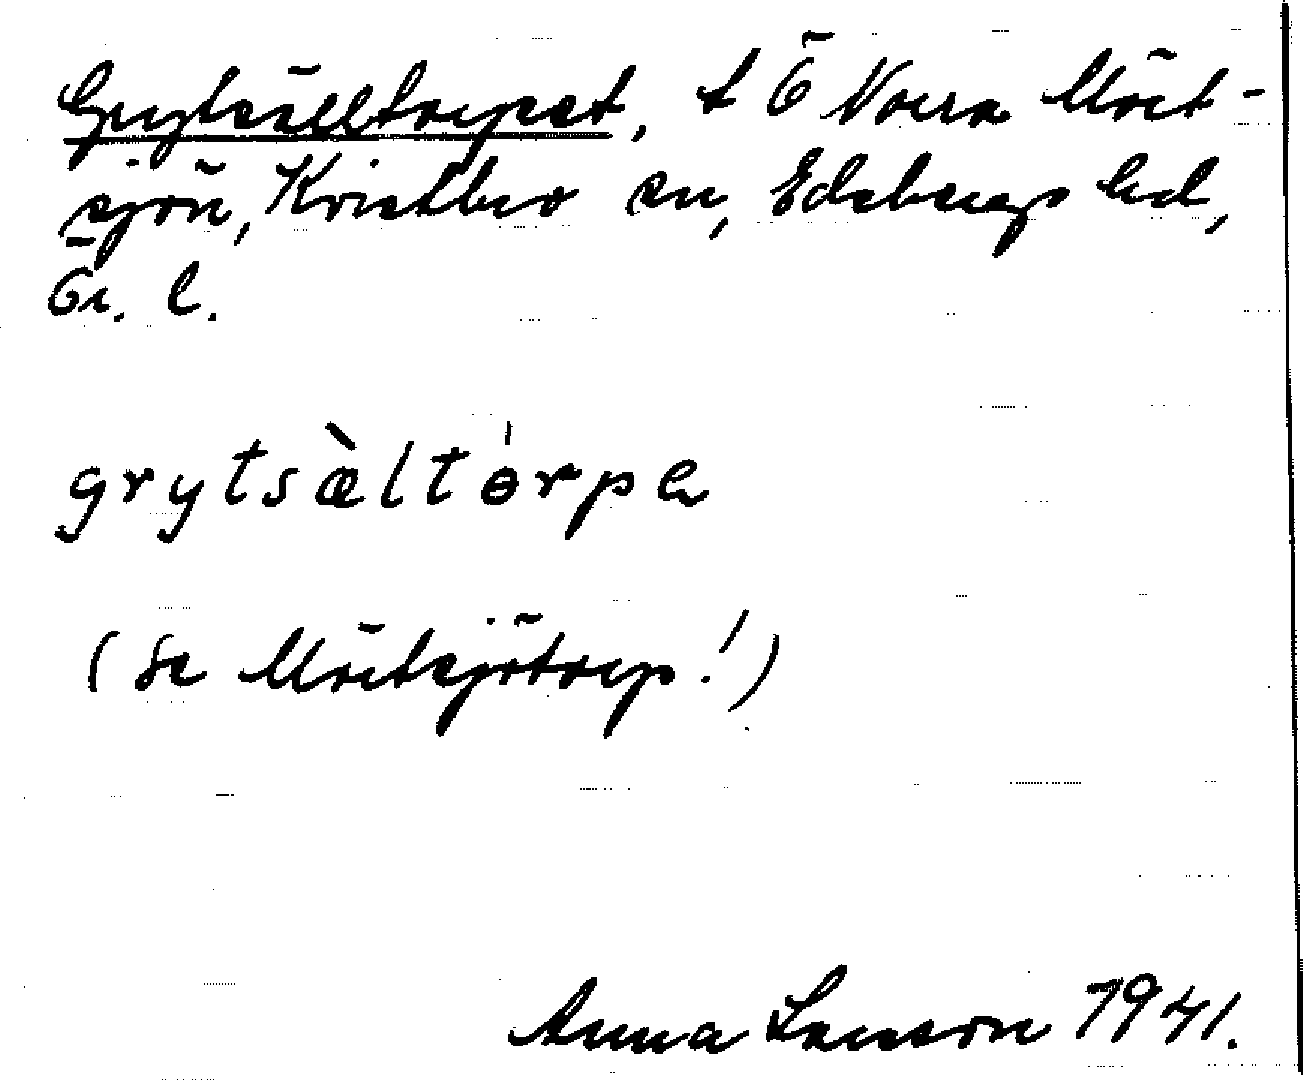 Grytsälltorpet, t Ö Norra Mört-
sjön, Kristberg sn, Edsbergs hd,
Ör. l.
grytsæ̀ltɵ́rpa
(Se Mörtsjötorp!)
Anna Larsson 1941.